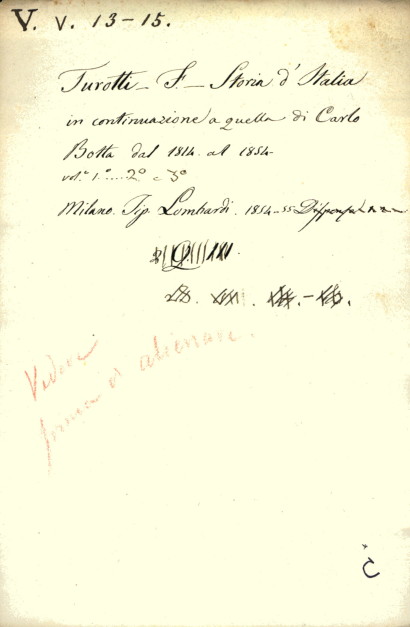 V. V. 13-15.
Turotti - F. - Storia d'Italia
in continuazione a quella di Carlo
Botta dal 1814. al 1854-
vol.i 1.o .... 2o e 3o
Milano. Tip. Lombardi. 1854-55
Vedere
prima di alienare.
C